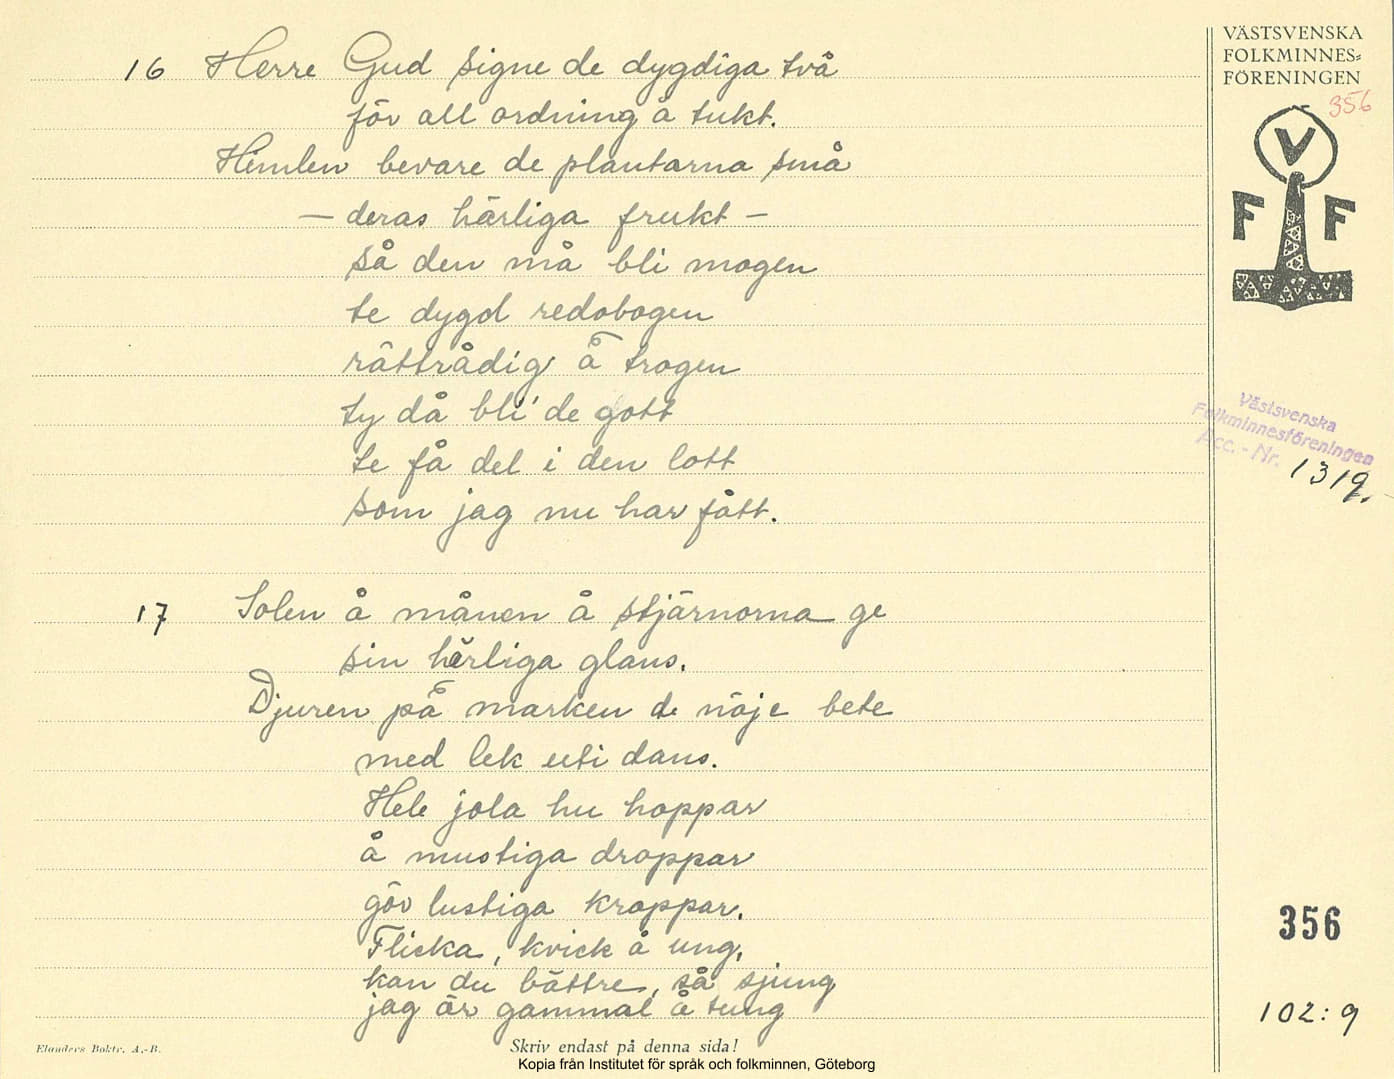 16 Herre Gud signe de dygdiga två
för all ordning å tukt.
Himlen bevare de plantarna små
— deras härliga frukt —
så den må bli mogen
te dygd redobogen
rättrådig å trogen
ty då bli' de gott
te få del i den lott
som jag nu har fått.
17 Solen å månen å stjärnorna ge
sin härliga glans.
Djuren på marken de nöje bete
med lek uti dans.
Hele jola hu hoppar
å mustiga droppar
gör lustiga kroppar.
Flicka, kvick å ung,
kan du bättre, så sjung
jag är gammal å tung
VÄSTSVENSKA
FOLKMINNES-
FÖRENINGEN
356
V
F F
Västsvenska
Folkminnesföreningen
Acc. - Nr. 1319.
356
102:9
Elanders Boktr. A.-B.
Skriv endast på denna sida!
Kopia från Institutet för språk och folkminnen, Göteborg